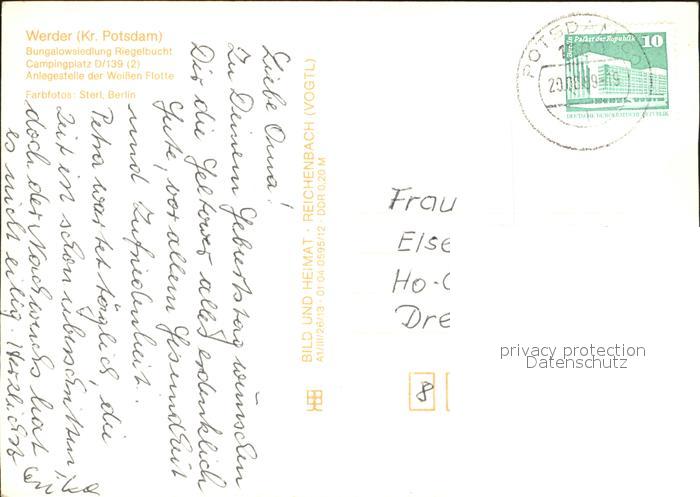 Werder (Kr. Potsdam)
Bungalowsiedlung Riegelbucht
Campingplatz D/139 (2)
Anlegestelle der Weißen Flotte
Farbfotos: Sterl, Berlin
Liebe Oma!
Zu Deinem Geburtstag wünschen
Dir die Geltower alles erdenklich
Gute, vor allem Gesundheit
und Zufriedenheit.
Petra wartet täglich, die
Zeit ist schon überschritten,
doch der Nachwuchs hat
es nicht eilig. Herzlichst
BILD UND HEIMAT · REICHENBACH (VOGTL)
A1/III/26/13 · 01 04 0595/12 · DDR 0,20 M
POTSDAM
20.06.89-19
Berlin Palast der Republik 10
DEUTSCHE DEMOKRATISCHE REPUBLIK
Frau
Else
Ho-
Dre
8
privacy protection
Datenschutz